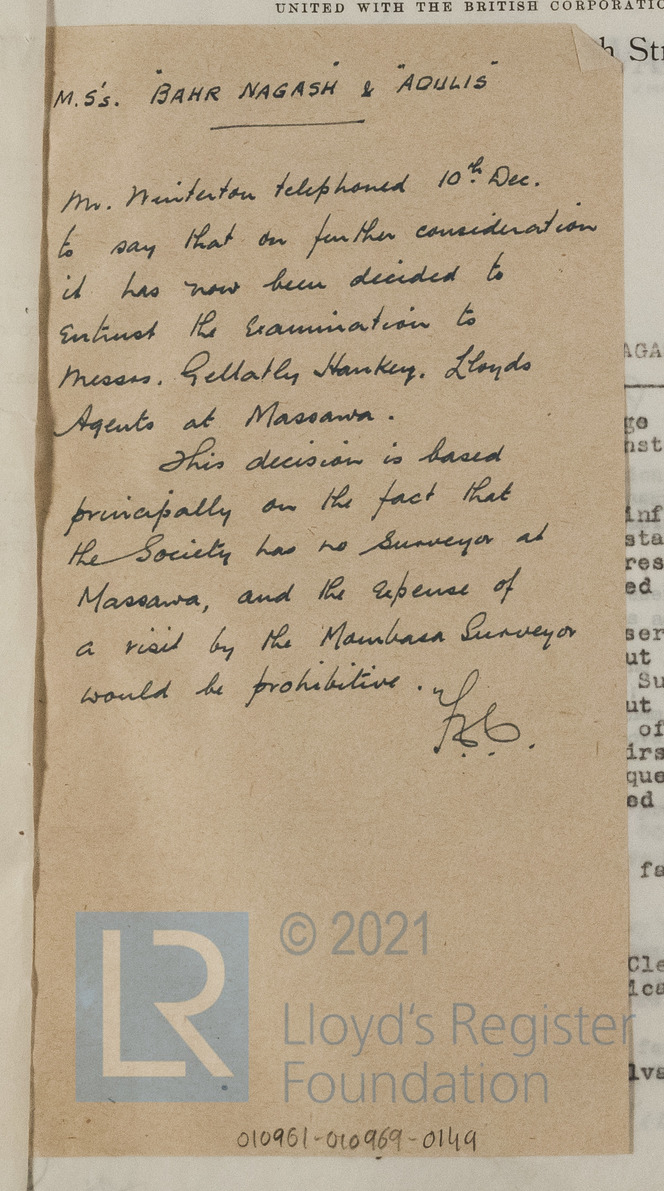 UNITED WITH THE BRITISH CORPORATIO
h Str
M.S's. "BAHR NAGASH" & "ADULIS"
Mr. Winterton telephoned 10th Dec.
to say that on further consideration
it has now been decided to
Entrust the Examination to
Messrs. Gellatly Hankey. Lloyds
Agents at Massawa.
This decision is based
principally on the fact that
the Society has no Surveyor at
Massawa, and the Expense of
a visit by the Mombasa Surveyor
would be prohibitive.
AGA
go
nst
inf
sta
res
ed
ser
ut
Su
ut
of
irs
que
ed
fa
Cle
ica
lva
LR
© 2021
Lloyd's Register
Foundation
010961-010969-0149